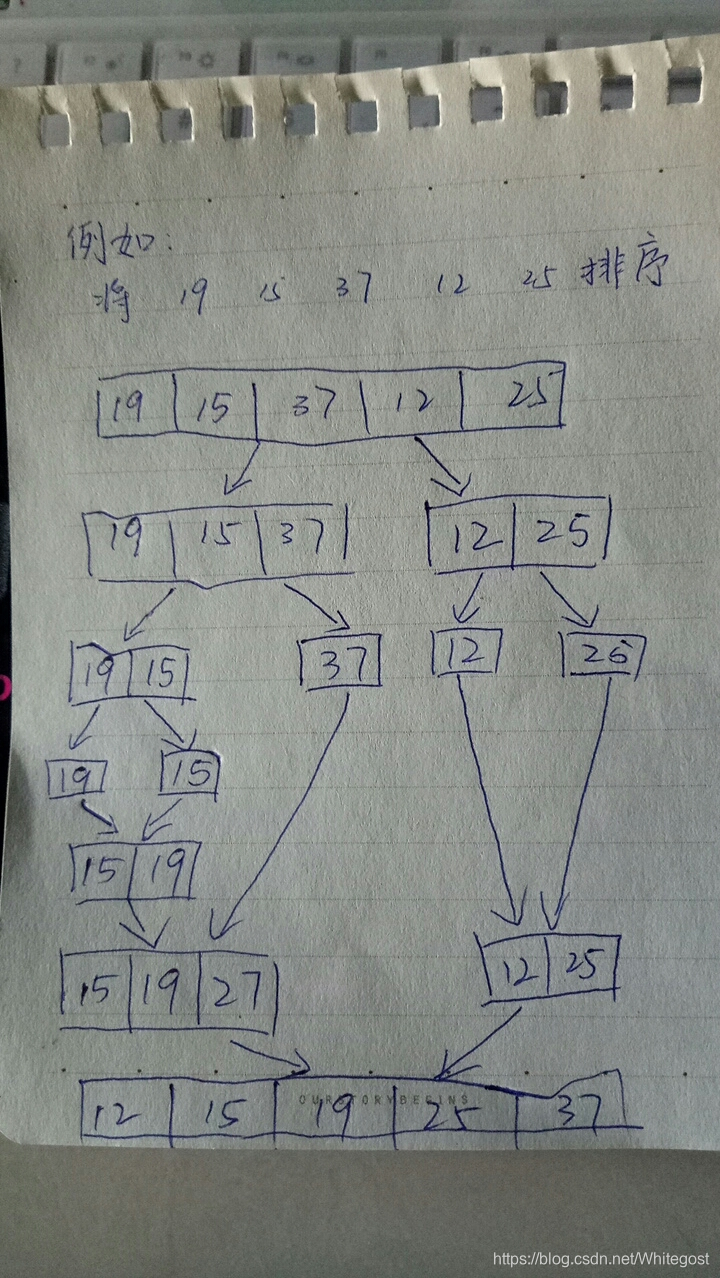 例如:
将 19 15 37 12 25 排序
19 15 37 12 25
19 15 37 12 25
19 15 37 12 26
19 15
15 19
15 19 27 12 25
OURSTORYBEGINS
12 15 19 25 37
https://blog.csdn.net/Whitegost